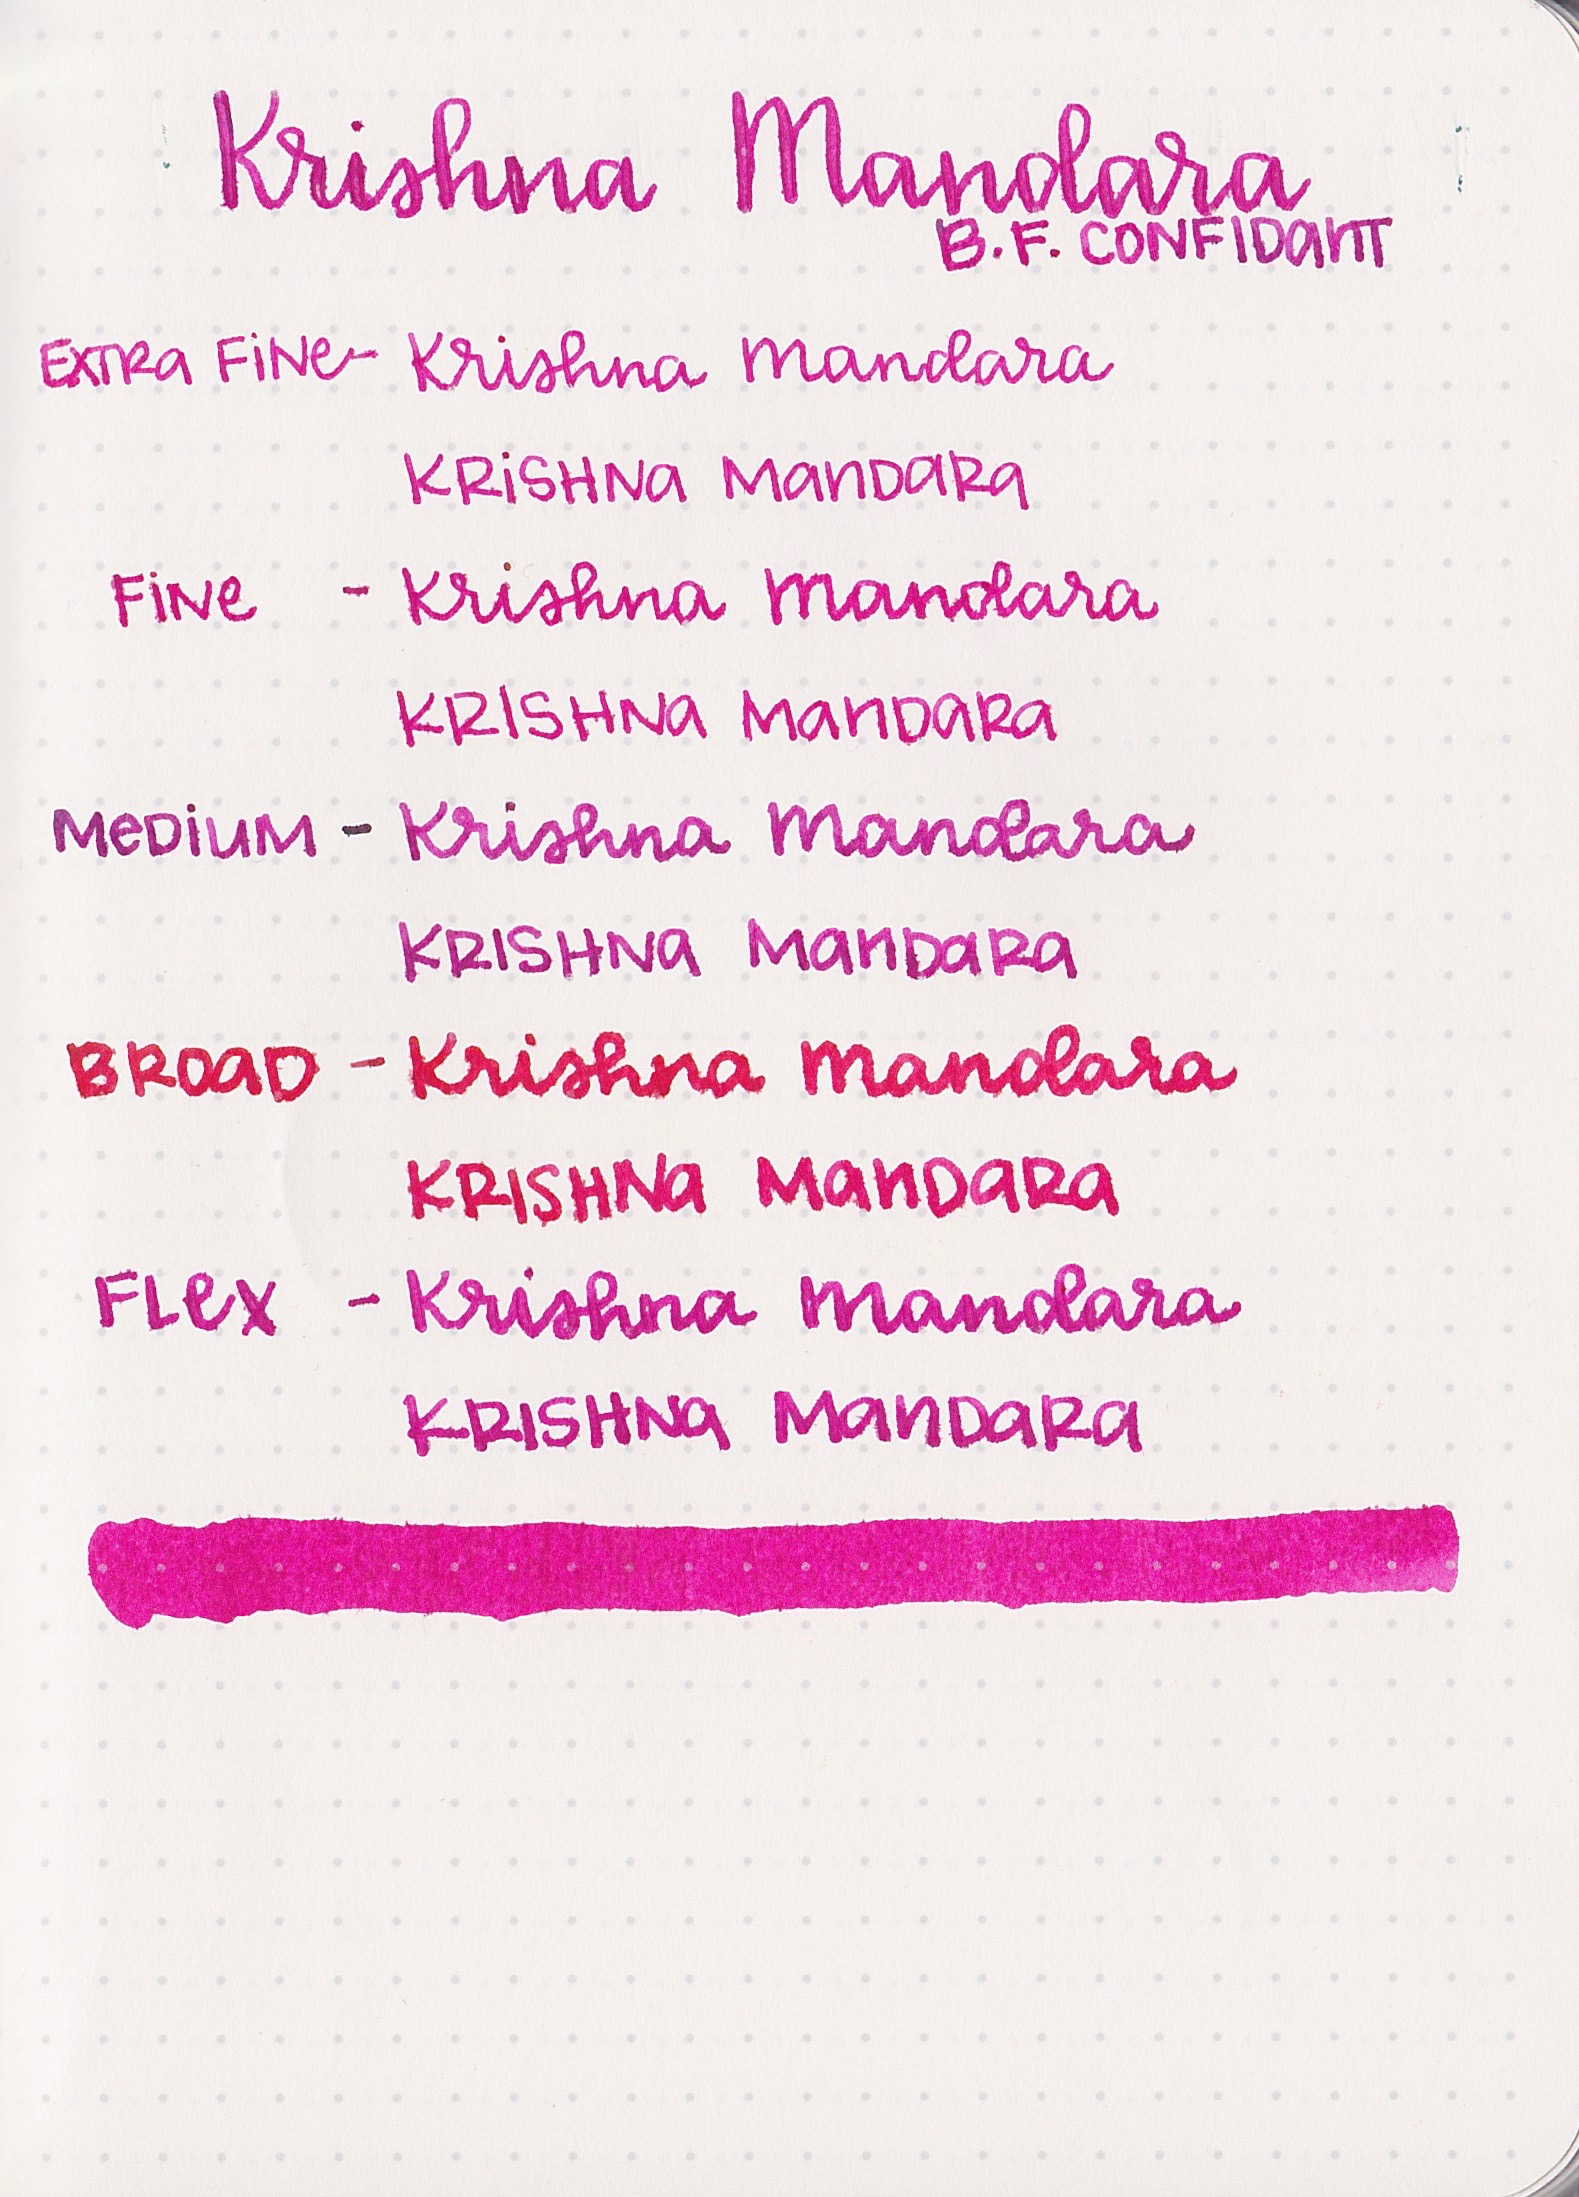 Krishna Mandara
B.F. CONFIDANT
EXTRA FINE - Krishna Mandara
KRISHNA MANDARA
FINE - Krishna Mandara
KRISHNA MANDARA
MEDIUM - Krishna Mandara
KRISHNA MANDARA
BROAD - Krishna Mandara
KRISHNA MANDARA
FLEX - Krishna Mandara
KRISHNA MANDARA